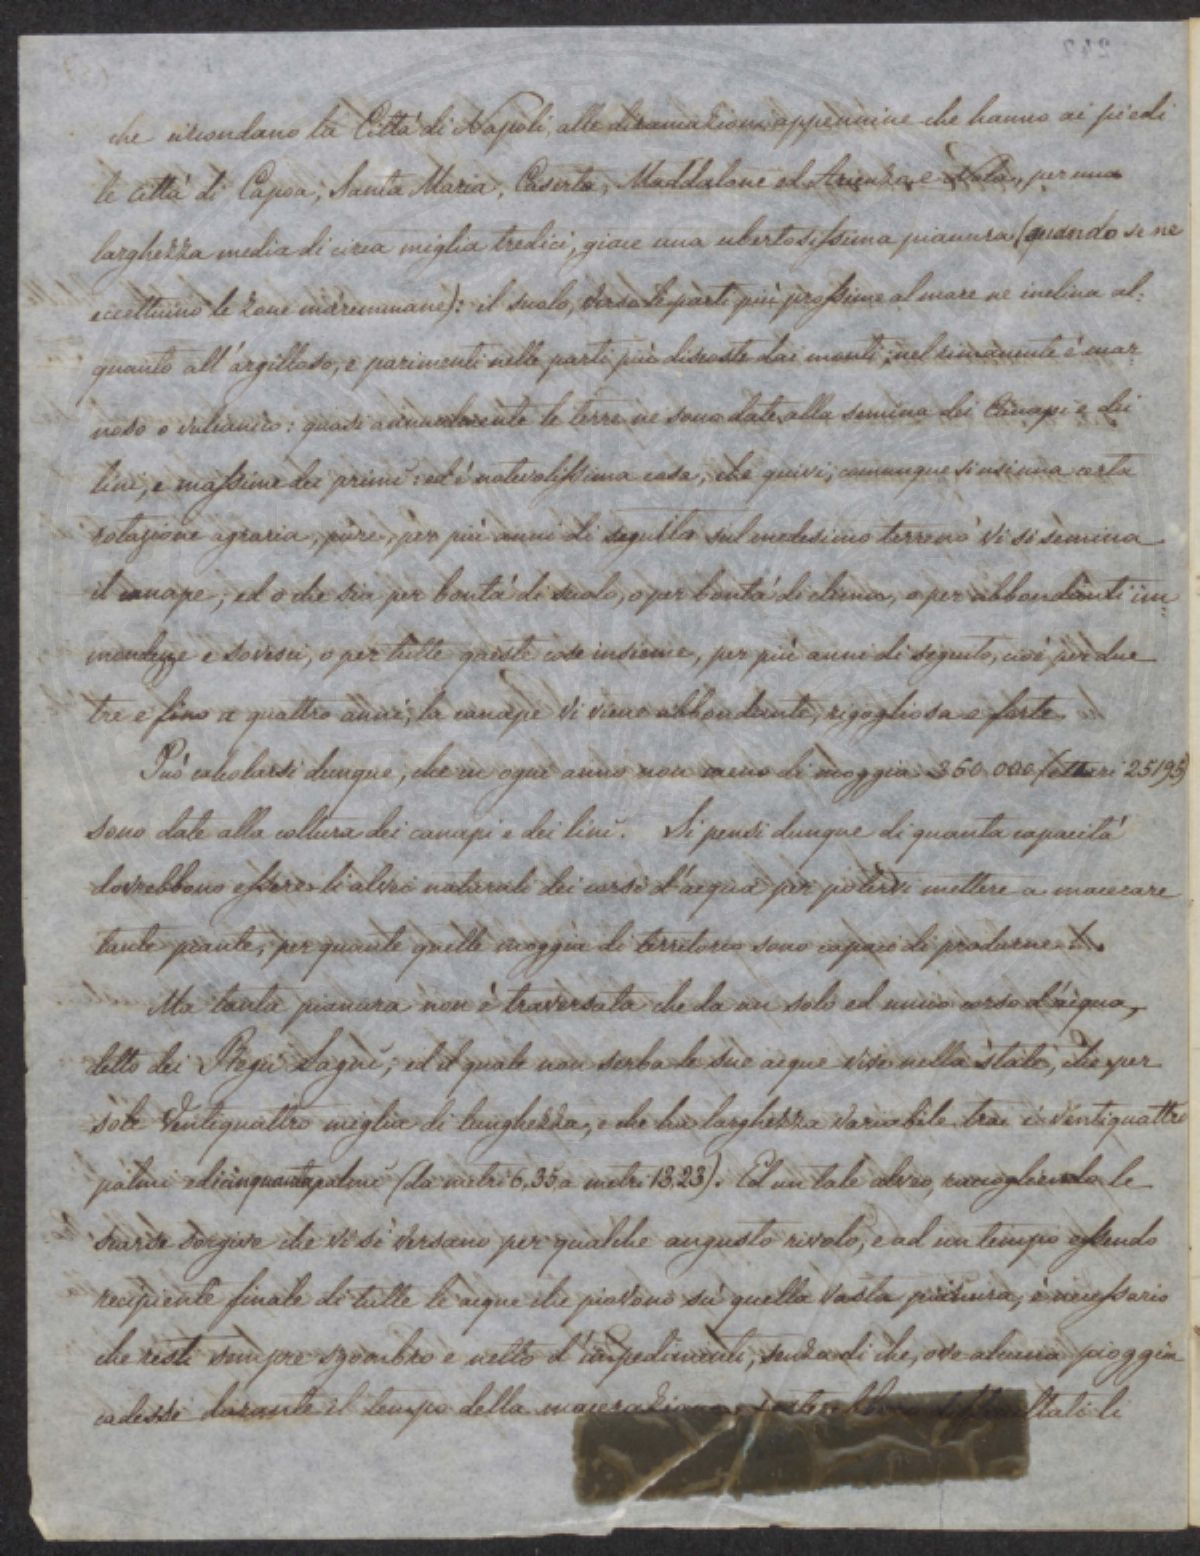 che circondano la Città di Napoli, alle diramazioni appennine che hanno ai piedi
le città di Capoa, Santa Maria, Caserta, Maddalone ed Arienzo e Nola, per una
larghezza media di circa miglia tredici, giace una ubertosissima pianura (quando se ne
eccettuino le zone maremmane): il suolo, verso le parti più prossime al mare ne inclina al-
quanto all'argilloso, e parimenti nelle parti più discoste dai monti; nel rimanente è mar
noso o vulcanico: quasi annualmente le terre ne sono date alla semina dei Canapi e dei
lini, e massime dei primi: ed è notevolissima cosa, che quivi, comunque si usi una certa
rotazione agraria, pure, per più anni di seguito sul medesimo terreno vi si semina
il canape; ed o che sia per bontà di suolo, o per bontà di clima, o per abbondanti im=
mondezze e sovesci, o per tutte queste cose insieme, per più anni di seguito, cioè per due
tre e fino a quattro anni, la canape vi viene abbondante, rigogliosa e forte.
Può calcolarsi dunque, che in ogni anno non meno di moggia 360.000 (ettari 25195)
sono date alla coltura dei canapi e dei lini. Si pensi dunque di quanta capacità
dovrebbono essere li alvei naturali dei corsi d'acqua per potervi mettere a macerare
tante piante, per quante quelle moggia di territorio sono capaci di produrne.
Ma tanta pianura non è traversata che da un solo ed unico corso d'acqua,
detto dei Regii Lagni; ed il quale non serba le sue acque vive nella state, che per
sole ventiquattro miglia di lunghezza, e che ha larghezza variabile tra i ventiquattro
palmi e di cinquanta palmi (da metri 6,35 a metri 13,23). Ed un tale alveo, raccogliendo le
scarse sorgive che vi si versano per qualche augusto rivolo, e ad un tempo essendo
recipiente finale di tutte le acque che piovono su quella vasta pianura, è necessario
che resti sempre sgombro e netto d'impedimenti, senza di che, ove alcuna pioggia
cadesse durante il tempo della macerazione, li